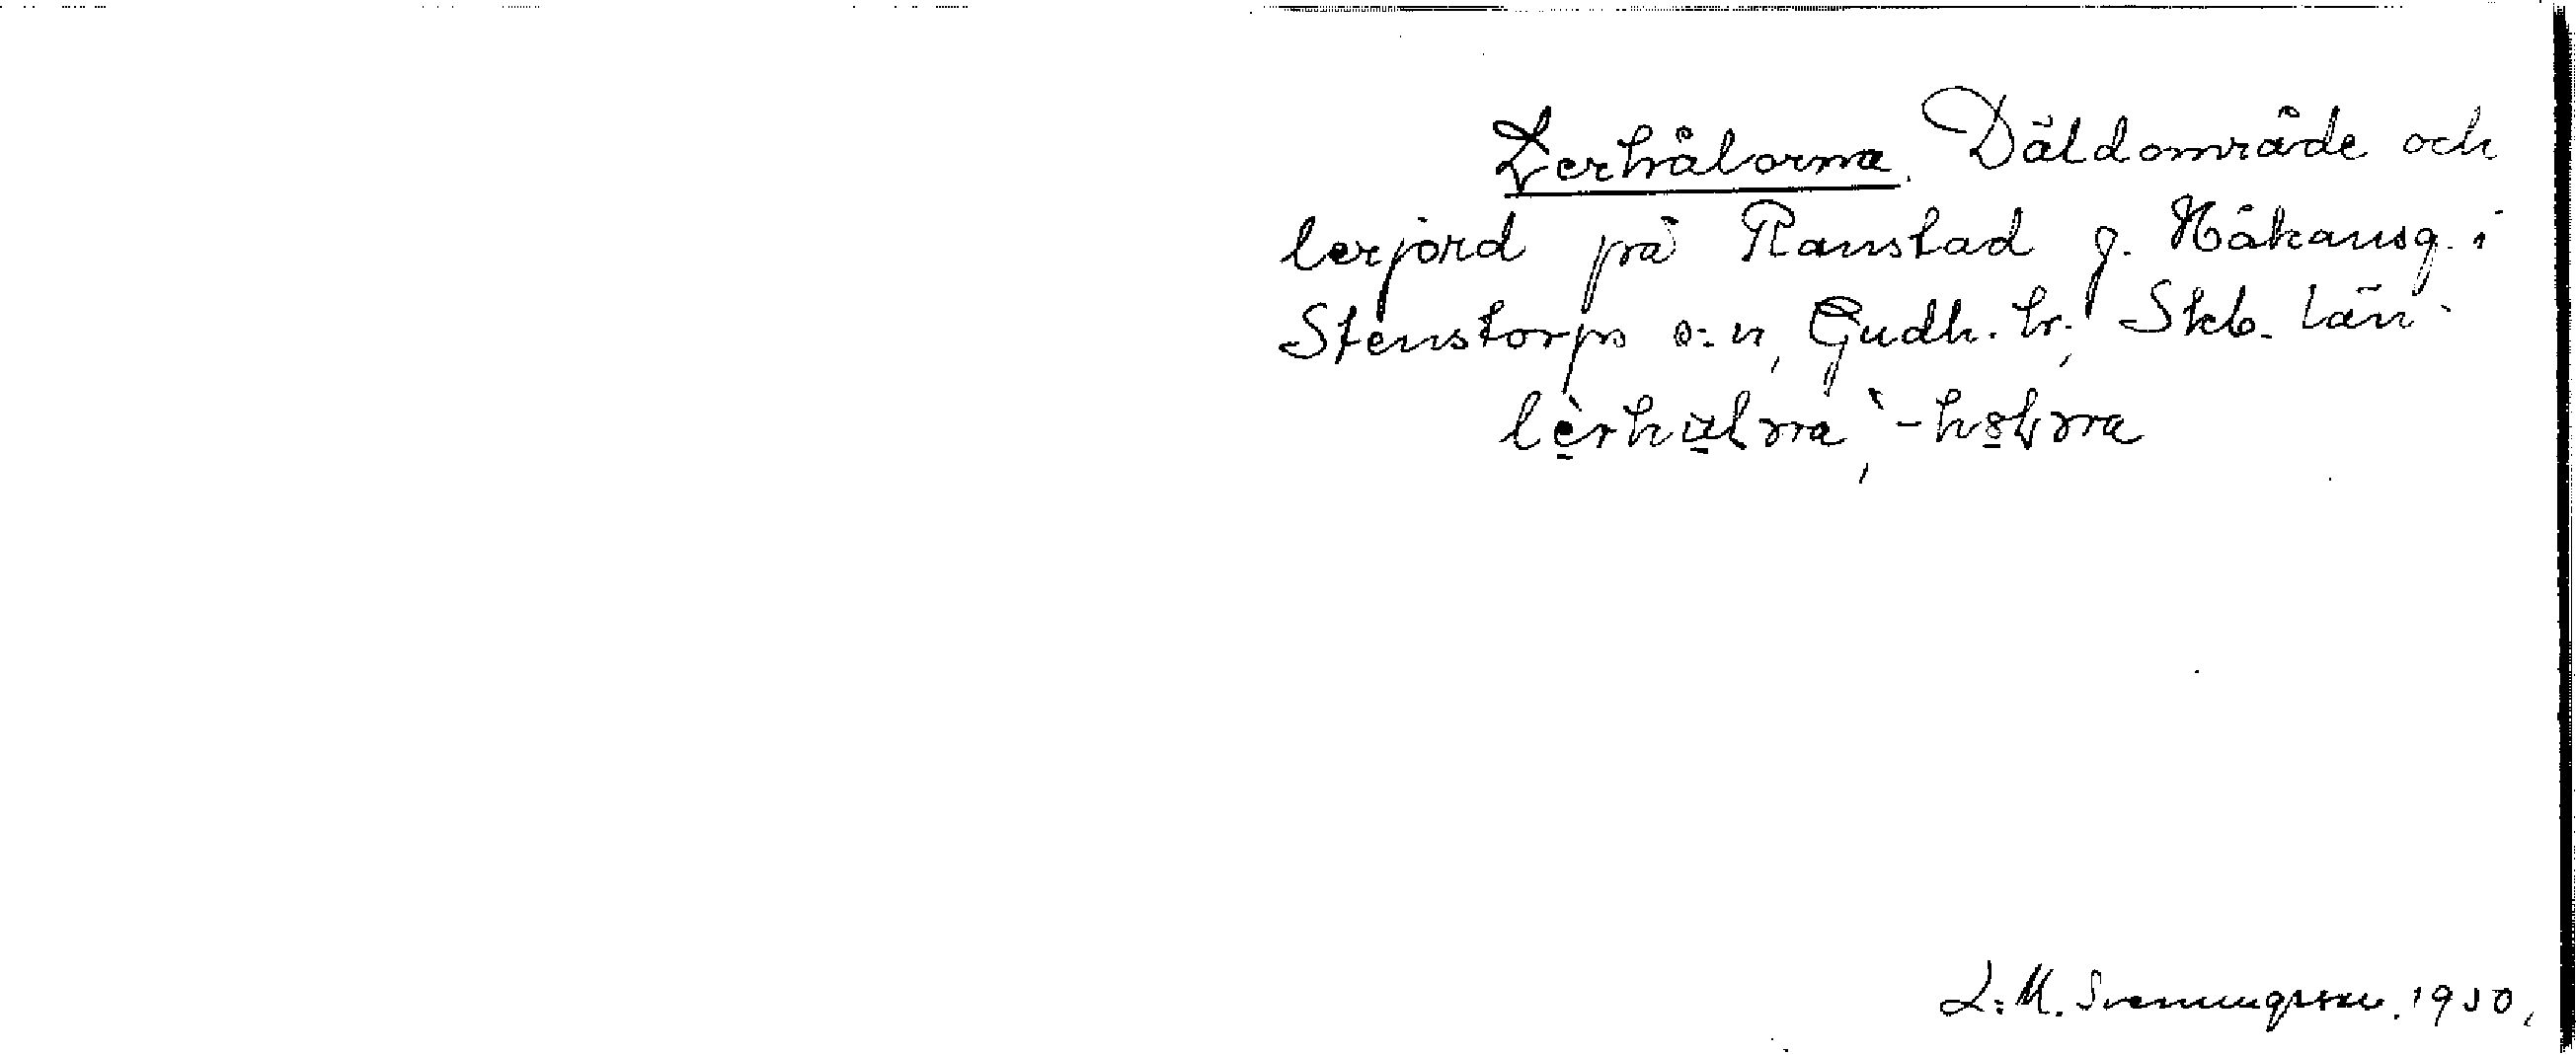 Lerhålorna. Däldområde och
lerjord på Ranstad g. Håkansg. i
Stenstorps s:n, Gudh. hr, Skb. län.
L. M. Svenungsson. 1930.